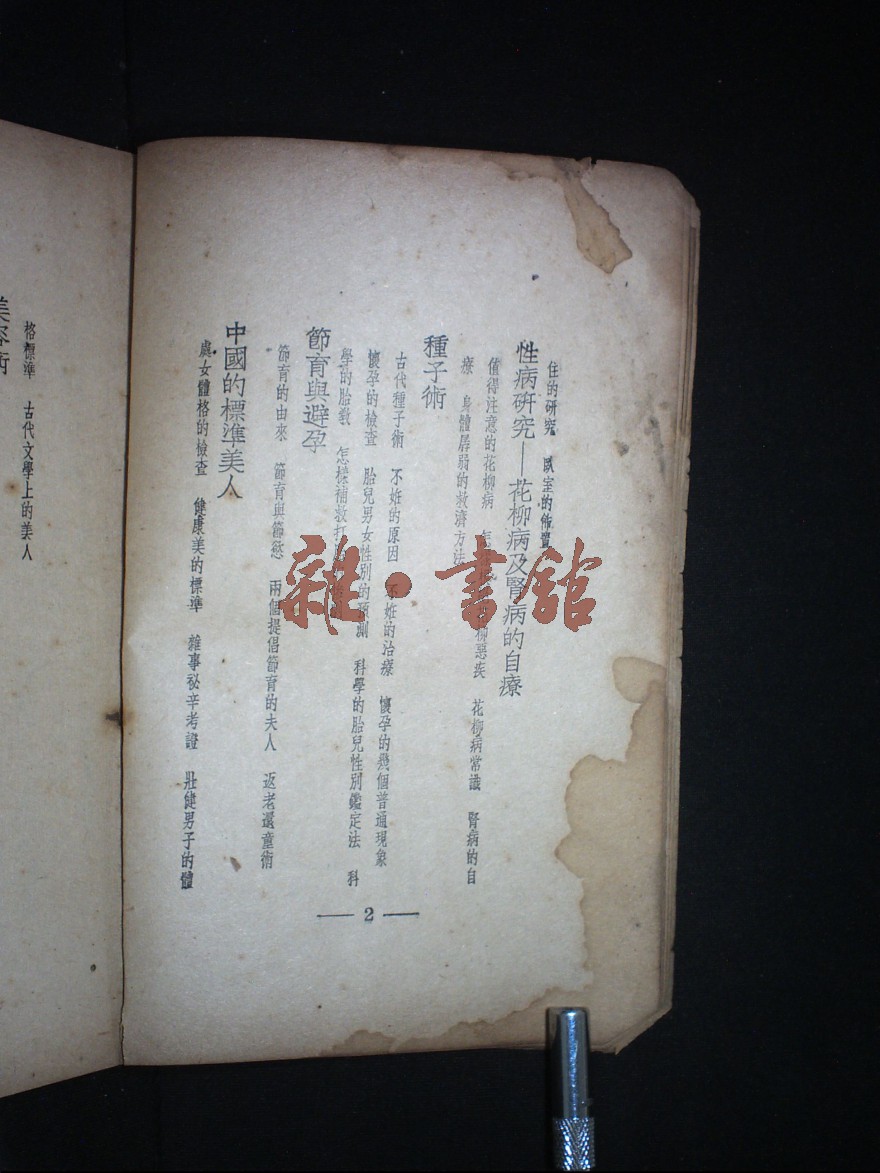 住的研究 臥室的佈置
性病研究—花柳病及腎病的自療
值得注意的花柳病 花柳惡疾 花柳病常識 腎病的自
療 身體孱弱的救濟方法
種子術
古代種子術 不姙的原因 不姙的治療 懷孕的幾個普通現象
懷孕的檢查 胎兒男女性別的預測 科學的胎兒性別鑑定法 科
學的胎教 怎樣補救打
節育與避孕
節育的由來 節育與節慾 兩個提倡節育的夫人 返老還童術
中國的標準美人
處女體格的檢查 健康美的標準 雜事祕辛考證 壯健男子的體
— 2 —
格標準 古代文學上的美人
美容術
雜·書館